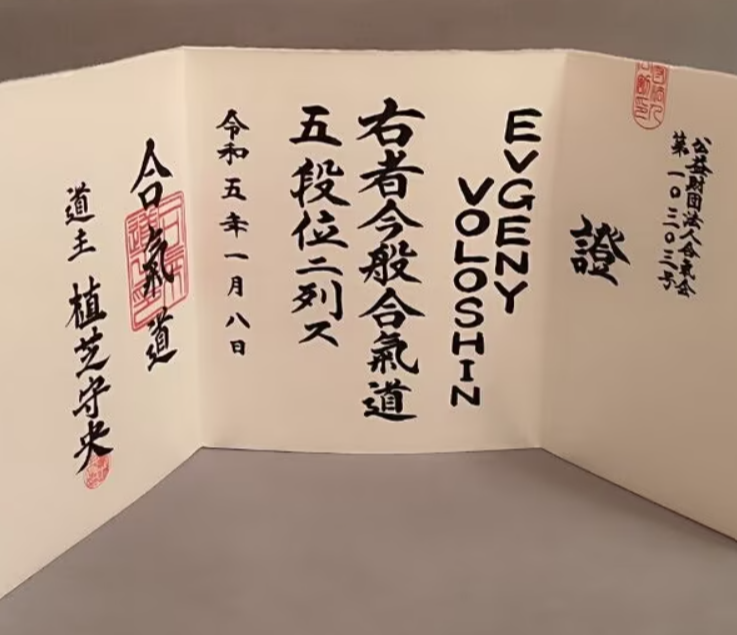 公益財団法人合氣会
第一〇三〇三号
證
EVGENY
VOLOSHIN
右者今般合氣道
五段位ニ列ス
令和五年一月八日
合氣道
道主 植芝守央